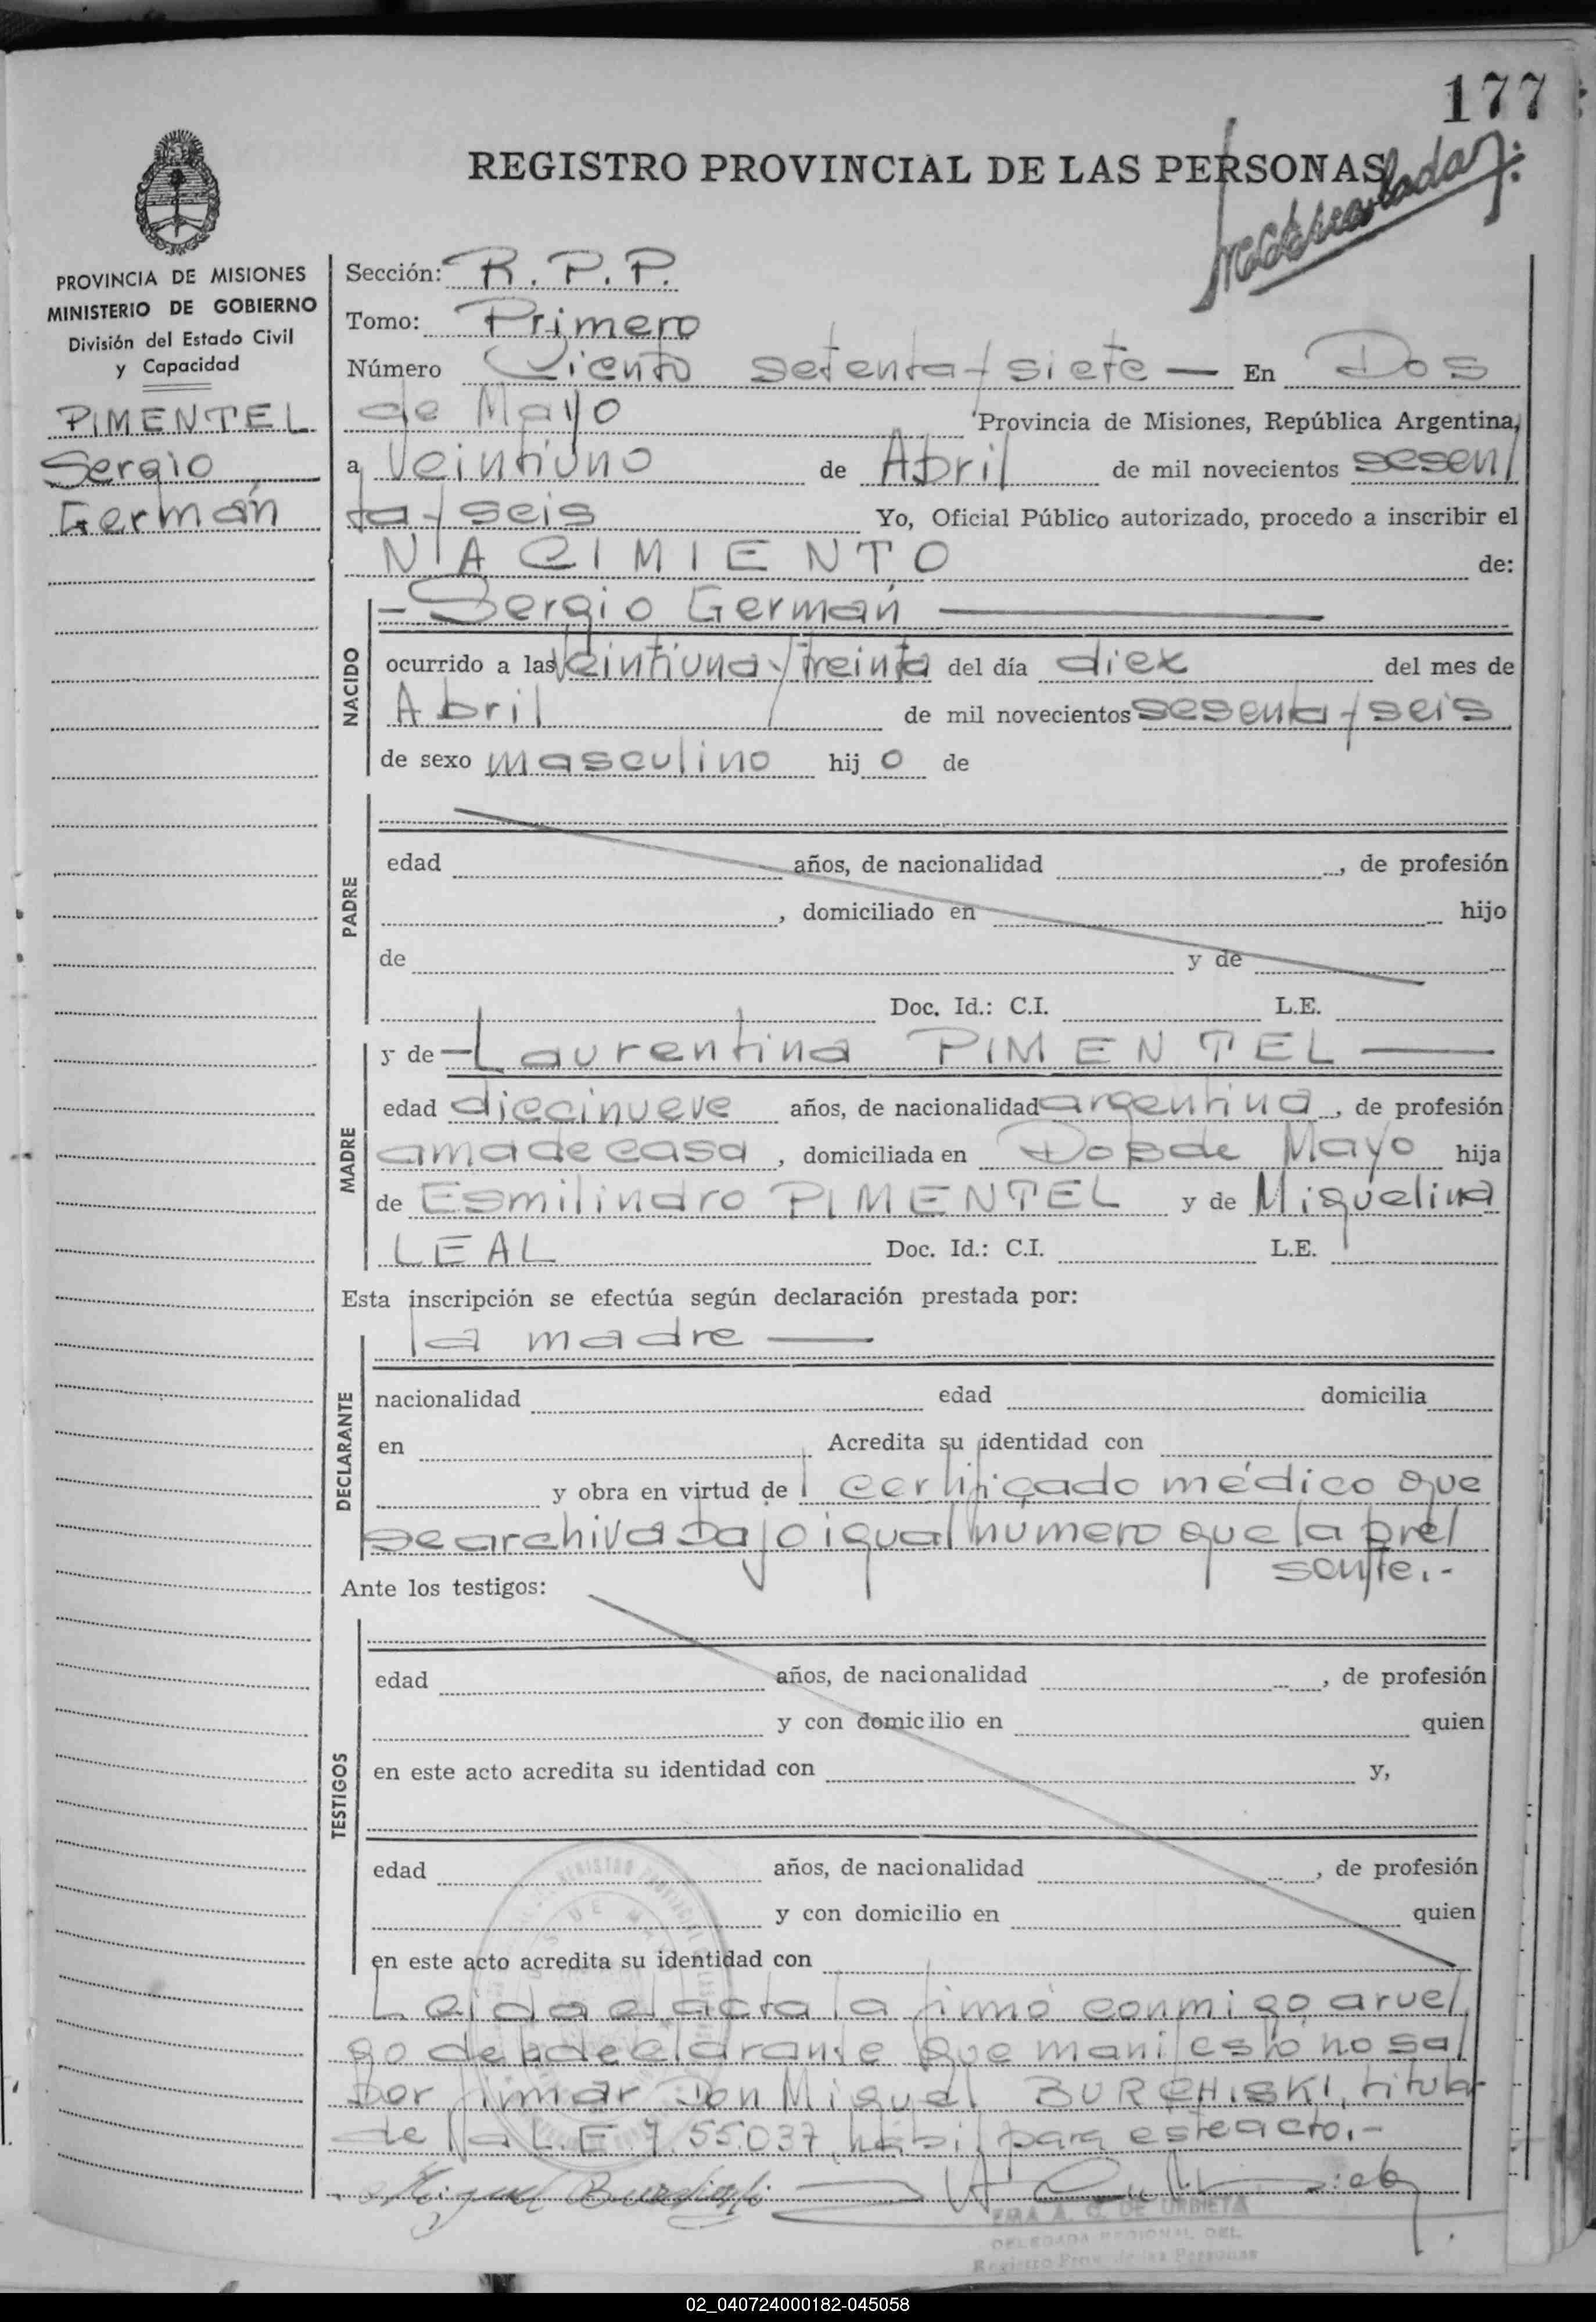 177
REGISTRO PROVINCIAL DE LAS PERSONAS
PROVINCIA DE MISIONES
MINISTERIO DE GOBIERNO
División del Estado Civil
y Capacidad
PIMENTEL
Sergio
Germán
Sección: R.P.P.
Tomo: Primero
Número Ciento setenta y siete — En Dos
de Mayo Provincia de Misiones, República Argentina,
a Veintiuno de Abril de mil novecientos sesen/
ta y seis Yo, Oficial Público autorizado, procedo a inscribir el
NACIMIENTO de:
NACIDO
— Sergio Germán —
ocurrido a las Veintiuna y treinta del día diez del mes de
Abril de mil novecientos sesenta y seis
de sexo masculino hij o de
PADRE
edad años, de nacionalidad , de profesión
, domiciliado en hijo
de y de
Doc. Id.: C.I. L.E.
MADRE
y de — Laurentina PIMENTEL —
edad diecinueve años, de nacionalidad argentina , de profesión
ama de casa , domiciliada en Dos de Mayo hija
de Esmilindro PIMENTEL y de Miguelina
LEAL Doc. Id.: C.I. L.E.
Esta inscripción se efectúa según declaración prestada por:
DECLARANTE
la madre —
nacionalidad edad domicilia
en Acredita su identidad con
y obra en virtud de certificado médico que
se archiva bajo igual numero que la pre/
sente.-
Ante los testigos:
TESTIGOS
edad años, de nacionalidad , de profesión
y con domicilio en quien
en este acto acredita su identidad con y,
edad años, de nacionalidad , de profesión
y con domicilio en quien
en este acto acredita su identidad con
Leida el acta la firmó conmigo a rue/
go de la declarante que manifestó no sa/
ber firmar Don Miguel BURCHISKI, titular
de la L.E. 7.55.037, hábil para este acto.-
Miguel
FMA A. G. DE URBIETA
DELEGADA REGIONAL DEL
Registro Prov. de las Personas
02_040724000182-045058